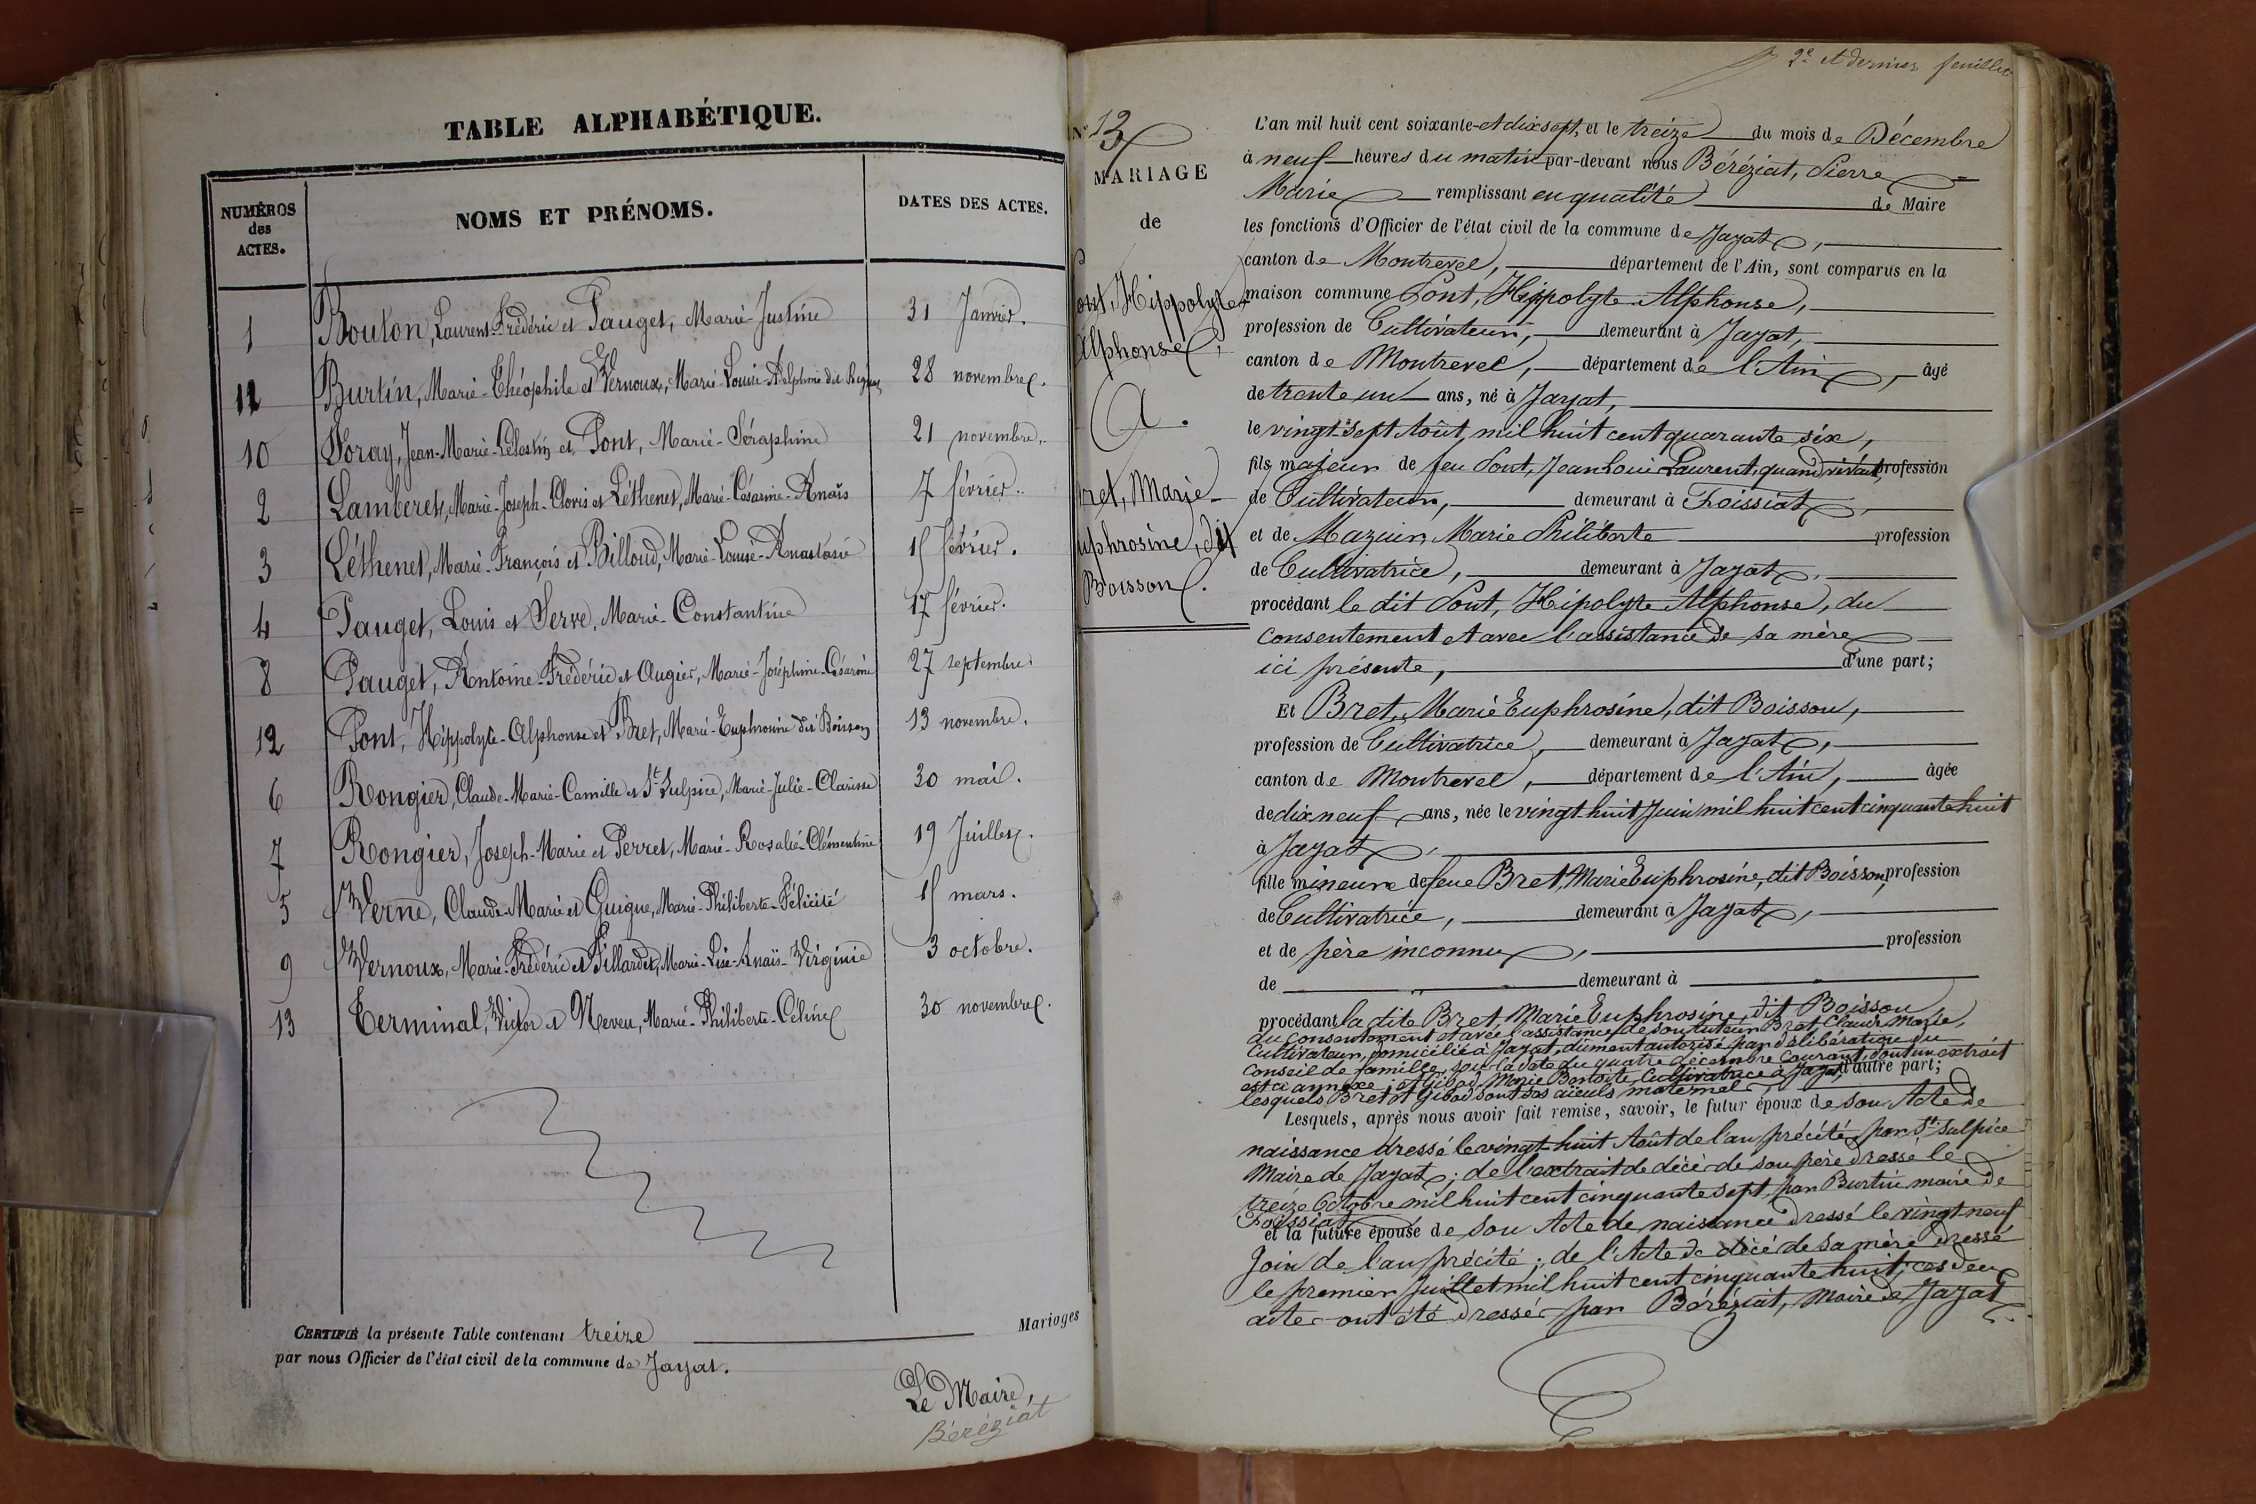 TABLE ALPHABÉTIQUE.
NUMÉROS des ACTES. NOMS ET PRÉNOMS. DATES DES ACTES.
1 Bouton, Laurent-Frédéric et Pauget, Marie-Justine 31 Janvier.
11 Burtin, Marie-Théophile et Vernoux, Marie-Louise-Delphine dit 28 novembre.
10 Doray, Jean-Marie-Célestin et Pont, Marie-Séraphine 21 novembre.
2 Lamberet, Marie-Joseph-Clovis et Léthenet, Marie-Césarine-Anaïs 7 février.
3 Léthenet, Marie-François et Billoud, Marie-Louise-Anastasie 15 février.
4 Pauget, Louis et Serve, Marie-Constantine 17 février.
8 Pauget, Antoine-Frédéric et Augier, Marie-Joséphine-Césarine 27 septembre.
12 Pont, Hippolyte-Alphonse et Bret, Marie-Euphrosine dit Boisson 13 novembre.
6 Rongier, Claude-Marie-Camille et St Sulpice, Marie-Julie-Clarisse 30 mai.
7 Rongier, Joseph-Marie et Perret, Marie-Rosalie-Clémentine 19 Juillet.
5 Verne, Claude-Marie et Guigue, Marie-Philiberte-Félicité 15 mars.
9 Vernoux, Marie-Frédéric et Fillardet, Marie-Lise-Anaïs-Virginie 3 octobre.
13 Terminal, Victor et Neveu, Marie-Philiberte-Céline 30 novembre.
CERTIFIÉ la présente Table contenant treize Mariages
par nous Officier de l'état civil de la commune de Jayat.
Le Maire,
Béréziat
2e et dernier feuillet
No 13
MARIAGE
de
Pont, Hippolyte
Alphonse,
A.
Bret, Marie-
Euphrosine, dit
Boisson.
L'an mil huit cent soixante-et dix sept, et le treize du mois de Décembre
à neuf heures du matin par-devant nous Béréziat, Pierre
Marie remplissant en qualité de Maire
les fonctions d'Officier de l'état civil de la commune de Jayat,
canton de Montrevel, département de l'Ain, sont comparus en la
maison commune Pont, Hippolyte Alphonse,
profession de Cultivateur, demeurant à Jayat,
canton de Montrevel, département de l'Ain, âgé
de trente un ans, né à Jayat,
le vingt-sept Août, mil huit cent quarante six,
fils majeur de feu Pont, Jean Louis Laurent, quand vivait, profession
de Cultivateur, demeurant à Foissiat,
et de Mazuir, Marie Philiberte profession
de Cultivatrice, demeurant à Jayat,
procédant le dit Pont, Hipolyte Alphonse, du
consentement et avec l'assistance de sa mère
ici présente, d'une part;
Et Bret, Marie Euphrosine, dit Boisson,
profession de Cultivatrice, demeurant à Jayat,
canton de Montrevel, département de l'Ain, âgée
de dix neuf ans, née le vingt huit Juin mil huit cent cinquante huit
à Jayat,
fille mineure de feue Bret, Marie Euphrosine, dit Boisson, profession
de Cultivatrice, demeurant à Jayat,
et de père inconnu, profession
de demeurant à
procédant la dite Bret, Marie Euphrosine, dit Boisson
du consentement et avec l'assistance de son tuteur Bret, Claude Marie,
Cultivateur, domicilié à Jayat, dûment autorisé par délibération du
Conseil de famille, sous la date du quatre décembre courant, dont un extrait
est ci annexé; et Gibod, Marie Cultivatrice à Jayat, d'autre part;
lesquels Bret et Gibod sont ses aïeuls maternel
Lesquels, après nous avoir fait remise, savoir, le futur époux de son Acte de
naissance dressé le vingt-huit Août de l'an précité, par St Sulpice
Maire de Jayat; de l'extrait de décè de son père dressé le
treize Octobre mil huit cent cinquante sept, par Burtin maire de
Foissiat
et la future épouse de son Acte de naissance dressé le vingt neuf
Join de l'an précité; de l'Acte de décé de sa mère dressé
le premier Juillet mil huit cent cinquante huit; ces deux
actes ont été dressés par Béréziat, Maire de Jayat.